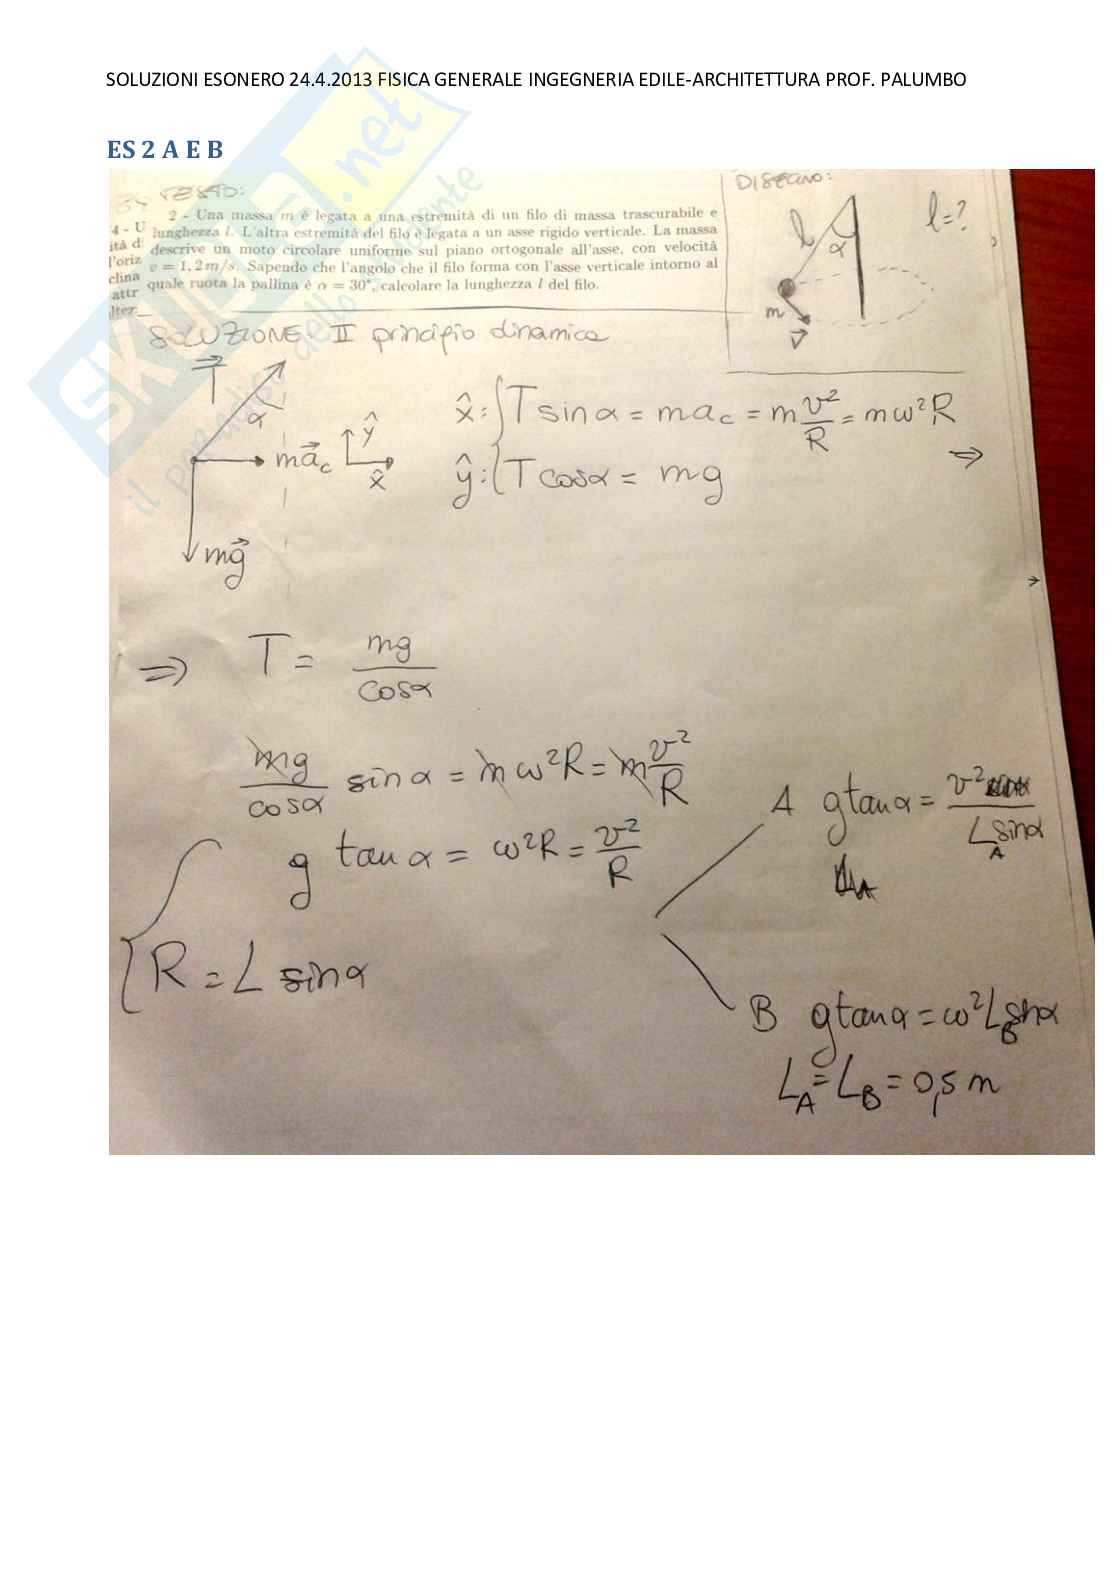 SOLUZIONI ESONERO 24.4.2013 FISICA GENERALE INGEGNERIA EDILE-ARCHITETTURA PROF. PALUMBO
ES 2 A E B
TESTO:
2 - Una massa m è legata a una estremità di un filo di massa trascurabile e
lunghezza l. L'altra estremità del filo è legata a un asse rigido verticale. La massa
descrive un moto circolare uniforme sul piano ortogonale all'asse, con velocità
v = 1,2 m/s. Sapendo che l'angolo che il filo forma con l'asse verticale intorno al
quale ruota la pallina è α = 30°, calcolare la lunghezza l del filo.
4 - U
ità di
l'oriz
clina
attr
lter
DISEGNO:
l
α
l=?
m
v⃗
SOLUZIONE II principio dinamica
T⃗
α
ma⃗c
ŷ
x̂
mg⃗
x̂: { T sinα = mac = m v²/R = mω²R
ŷ: { T cosα = mg
⇒
⇒ T = mg/cosα
mg/cosα sinα = mω²R = m v²/R
g tanα = ω²R = v²/R
{ R = L sinα
A g tanα = v²/(L_A sinα)
B g tanα = ω²L_B sinα
L_A = L_B = 0,5 m
SKUOLA.net
il paradiso dello studente